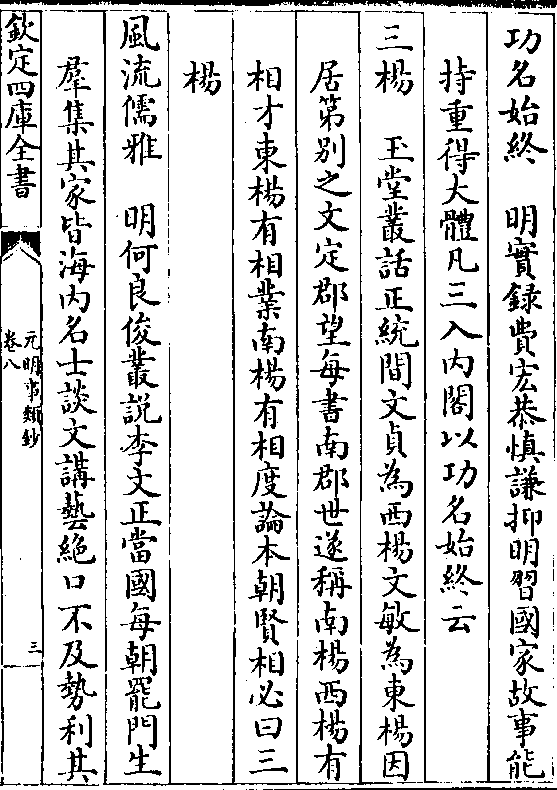 功名始終　明實録費宏恭慎謙抑明習國家故事能
持重得大體凡三入内閣以功名始終云
三楊　玉堂叢話正統間文貞為西楊文敏為東楊因
居第别之文定郡望每書南郡世遂稱南楊西楊有
相才東楊有相業南楊有相度論本朝賢相必曰三
楊
風流儒雅　明何良俊叢説李文正當國每朝罷門生
羣集其家皆海内名士談文講藝絶口不及勢利其
欽定四庫全書
元明事類鈔
卷八
三